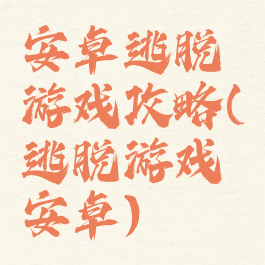 安卓逃脱
游戏攻略(
逃脱游戏
安卓)